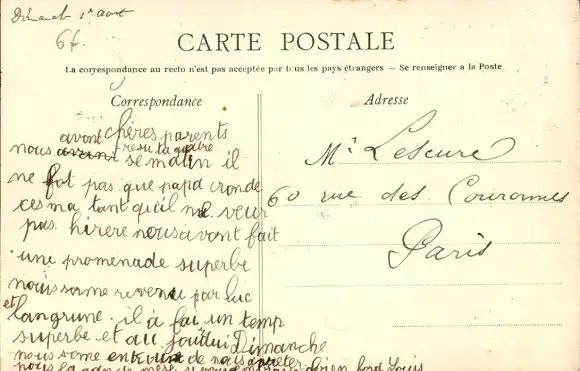 Dimanch 1r aout
6f.
CARTE POSTALE
La correspondance au recto n'est pas acceptée par tous les pays étrangers — Se renseigner à la Poste
Correspondance
Adresse
chères parents
nous avont resu ta quatre
se matin il
ne fot pas que papa cronde
ces ma tant qu'il ne veux
pas hirere nous avont fait
une promenade superbe
nous some revenu par Luc
et Langrune. il à fai un temp
superbe et au Dimanche
nous some de
Mr Lescure
60 rue des Couronnes
Paris